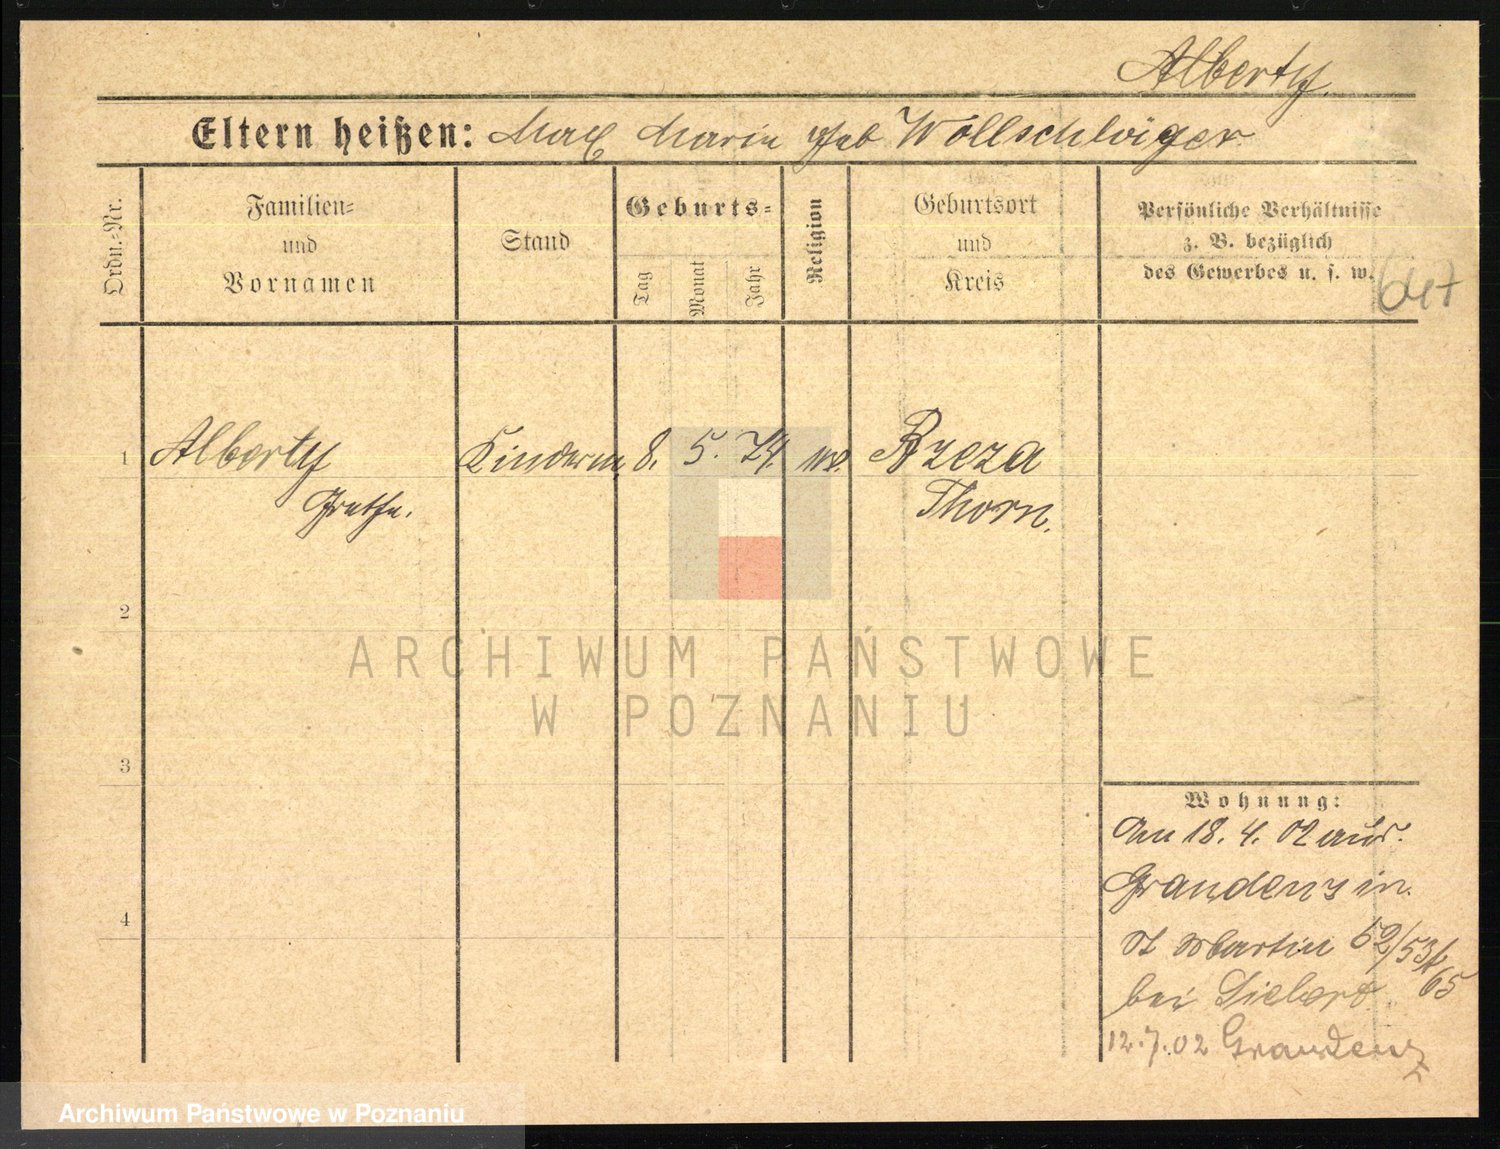 Alberty.
Eltern heißen: Max Marie geb Wollschläger
Ordn.-Nr.
Familien-
und
Vornamen
Stand
Geburts-
Tag
Monat
Jahr
Religion
Geburtsort
und
Kreis
Persönliche Verhältnisse
z. B. bezüglich
des Gewerbes u. s. w.
1 Alberty Kinderm. 8. 5. 74. Rzeza
Grethe. Thorn.
2
ARCHIWUM PAŃSTWOWE
W POZNANIU
3
Wohnung:
Am 18. 4. 02 aus.
Graudenz in.
St Martin 52/53
65
bei
4
12.7.02 Graudenz
Archiwum Państwowe w Poznaniu